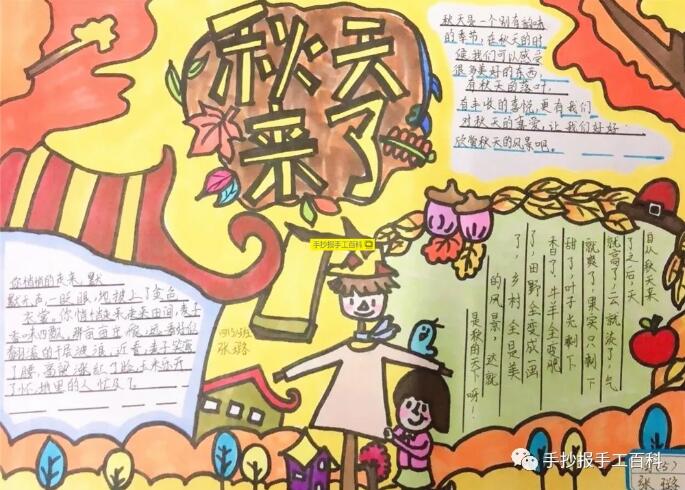 秋天
来了
秋天是一个别有韵味
的季节,在秋天的时
候我们可以感受
很多美好的东西,
有秋天的落叶,
有丰收的喜悦,更有我们
对秋天的喜爱,让我们好好
欣赏秋天的风景吧。
手抄报手工百科
你悄悄的走来,默
默无声,一眨眼,地披上了金色
衣裳,你悄悄走来走来田间,
翻滚的千层波浪,近看,麦子笑弯
了腰,高粱涨红了脸,玉米乐开
了怀,地里的人忙及了
张璐
自从秋天来
了之后,天
就高了,云就淡了,气
就爽了,果实只剩下
甜了,叶子光剩下
香了,牛羊全变肥
了,田野全变成画
了,乡村全是美
的风景,这就
是秋的天下呀!
手抄报手工百科
张璐